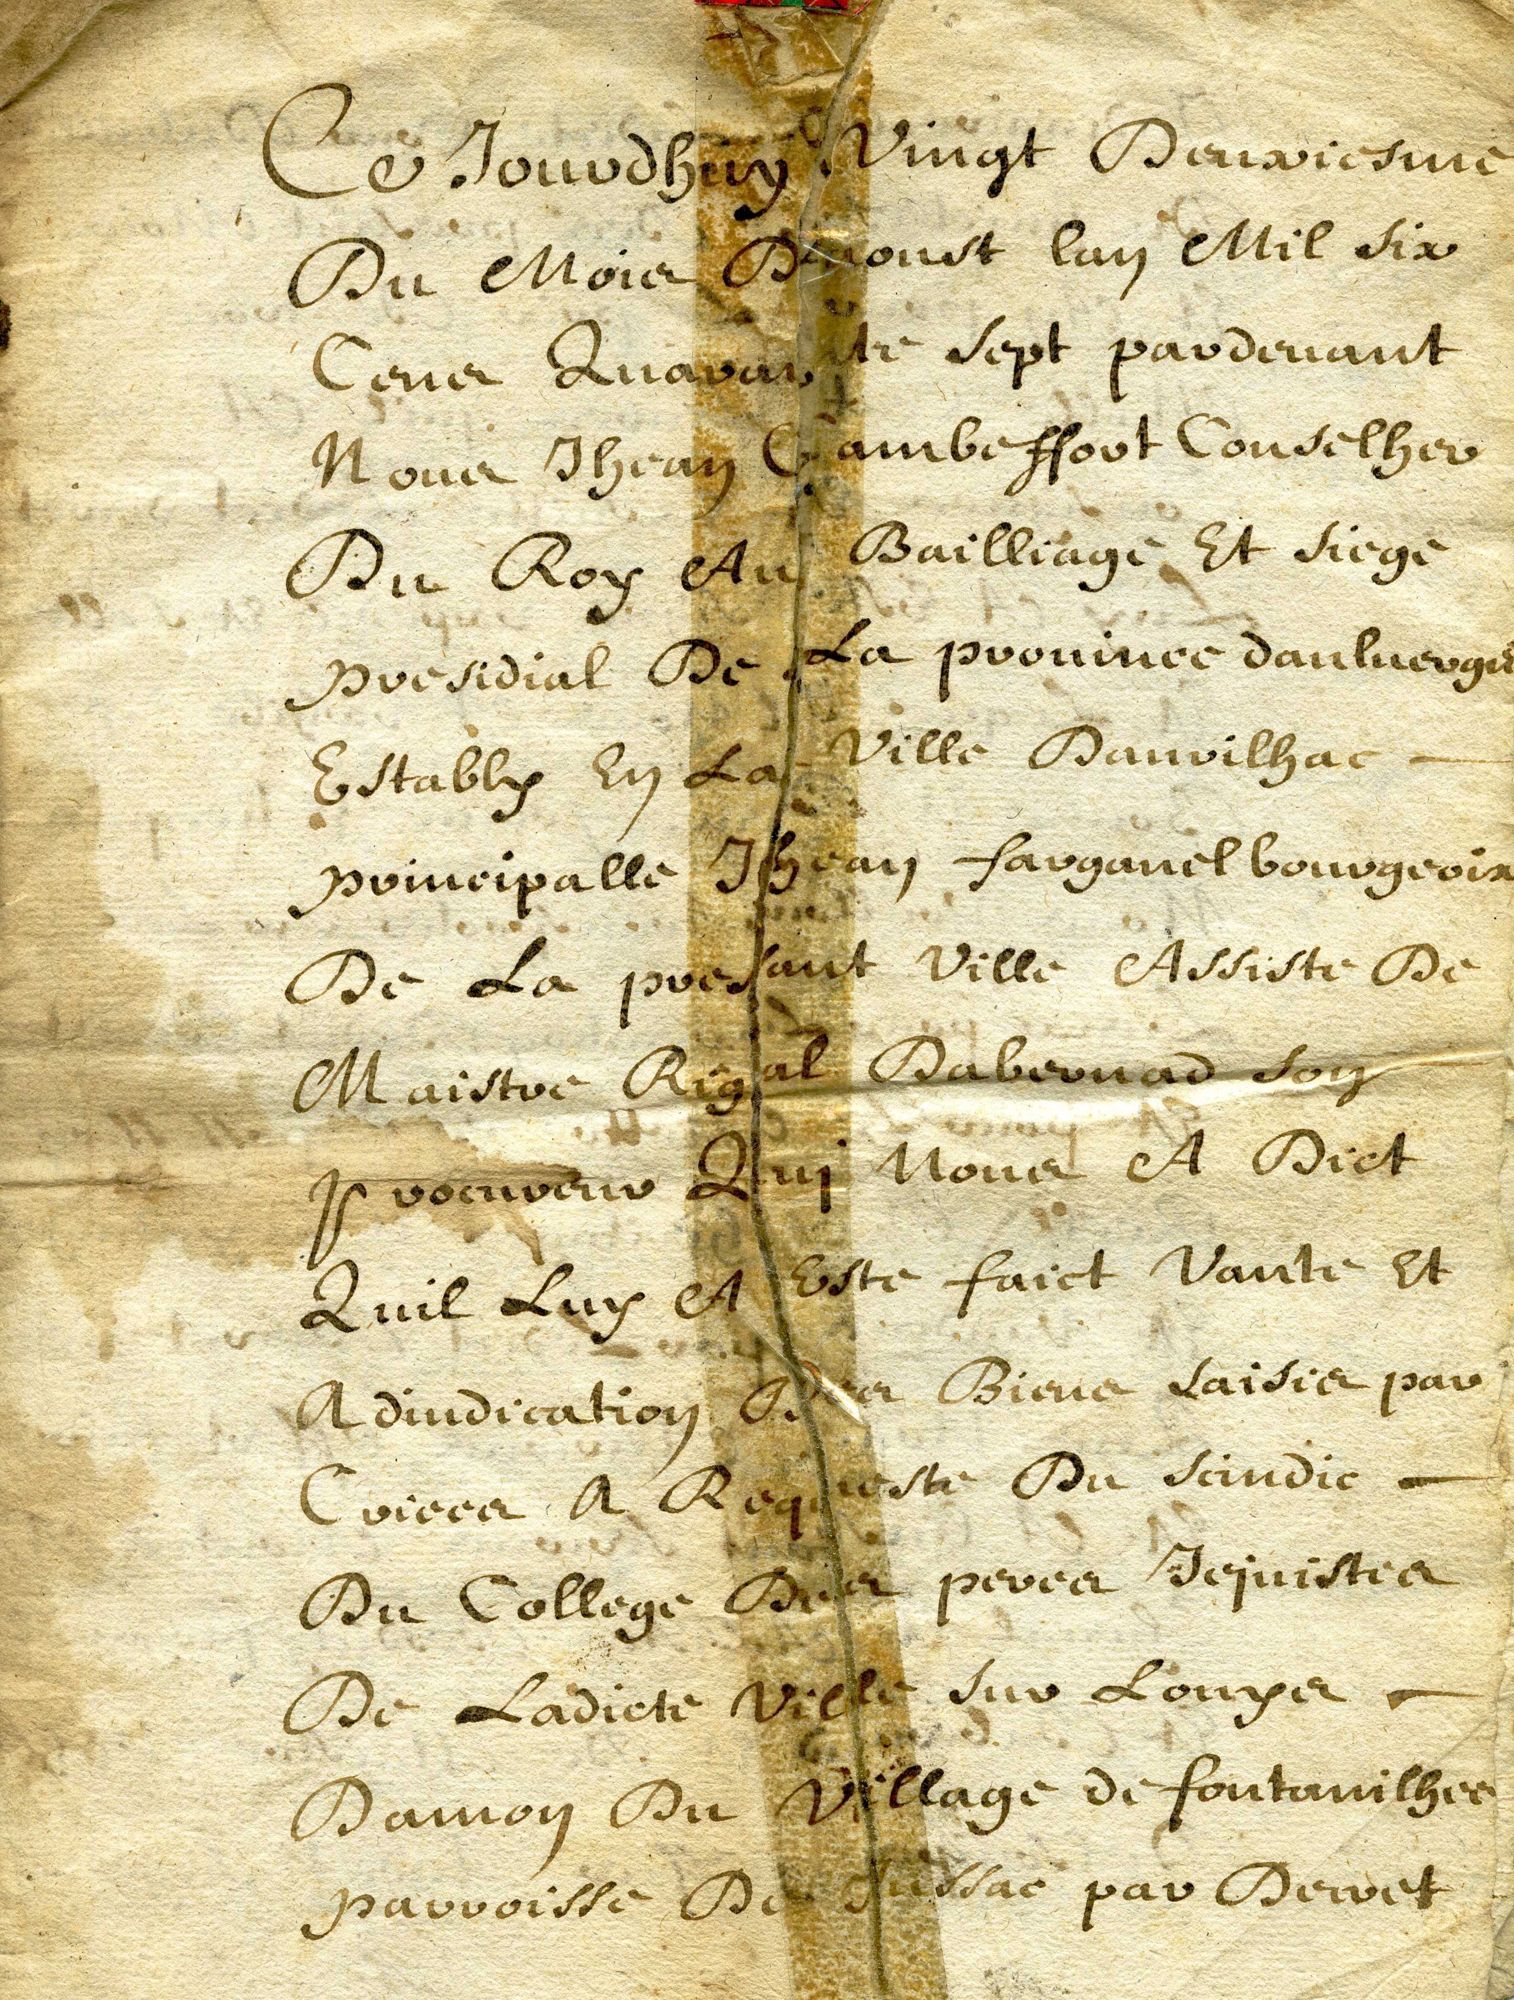 Ce Jourdhuy Vingt Deuxiesme
Du Mois Daoust lan Mil six
Cens Quarante sept pardeuant
Nous Jhean Cambeffort Conselher
Du Roy Au Bailliage Et siege
presidial De La prouince dauluergne
Estably En La Ville Daurilhac
principalle Jhean farganel bourgeoix
De La presant Ville Assiste De
Maistre Rigal Dabernad son
Procureur Quj Nous A Dict
Quil Luy A Este faict Vante Et
Adiudication Des Biens saisis par
Criees A Requeste Du scindic
Du College Des peres Jesuistes
De Ladicte Ville sur Louys
Damon Du Village de fontanilhes
parroisse De Jussac par Decret